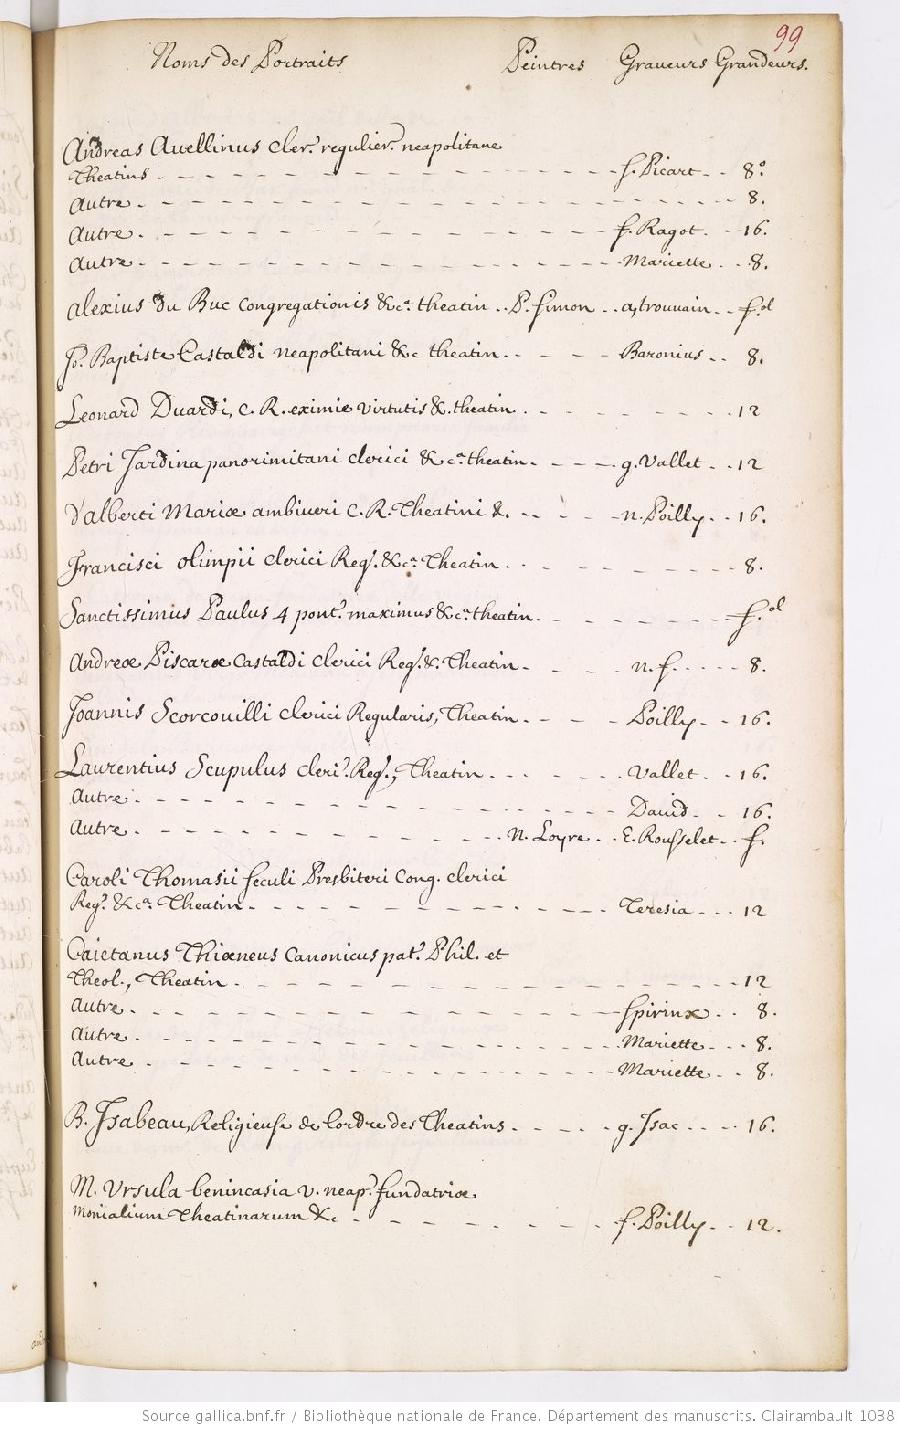 99
Noms des Portraits Peintres Graveurs Grandeurs.
Andreas Avellinus cler. regulier. neapolitane
Theatins - - - f. Picart - - 8.o
Autre - - - 8.
Autre - - - f. Ragot - - 16.
Autre - - - Mariette - - 8.
Alexius du Buc congregationis &c.a theatin - - P. Simon - - a, trouvain - - f.ol
Jo. Baptiste Castaldi neapolitani &c theatin - - - Baronius - - 8.
Leonard Duardi, C. R. eximie virtutis &. theatin - - - 12
Petri Jardina panorimitani clerici &c.a theatin - - - g. Vallet - - 12
d'alberti Mariæ ambiveri C. R. Theatini &. - - - n. Poilly - - 16.
Francisci olimpii clerici Reg. &c.a Theatin - - - 8.
Sanctissimus Paulus 4 pont. maximus &c.a theatin - - - f.ol
Andreæ Piscaræ Castaldi clerici Reg. &. Theatin - - - n. f. - - - 8.
Joannis Scorcouilli clerici Regularis, Theatin - - - Poilly - - 16.
Laurentius Scupulus cleri. Reg., Theatin - - - Vallet - - 16.
Autre - - - David - - 16.
Autre - - - N. Loyre - - E. Rousselet - - f.
Caroli Thomasii seculi Presbiteri Cong. clerici
Reg. &c.a Theatin - - - Teresia - - - 12
Caietanus Thiæneus Canonicus pat. Phil. et
Theol., Theatin - - - 12
Autre - - - Spirinx - - 8.
Autre - - - Mariette - - 8.
Autre - - - Mariette - - 8.
B. Isabeau, Religieuse de lordre des Theatins - - - g. Isac - - - 16.
M. Ursula benincasia v. neap. fundatrix
Monialium Theatinarum &c - - - f. Poilly - - 12.
Source gallica.bnf.fr / Bibliothèque nationale de France. Département des manuscrits. Clairambault 1038